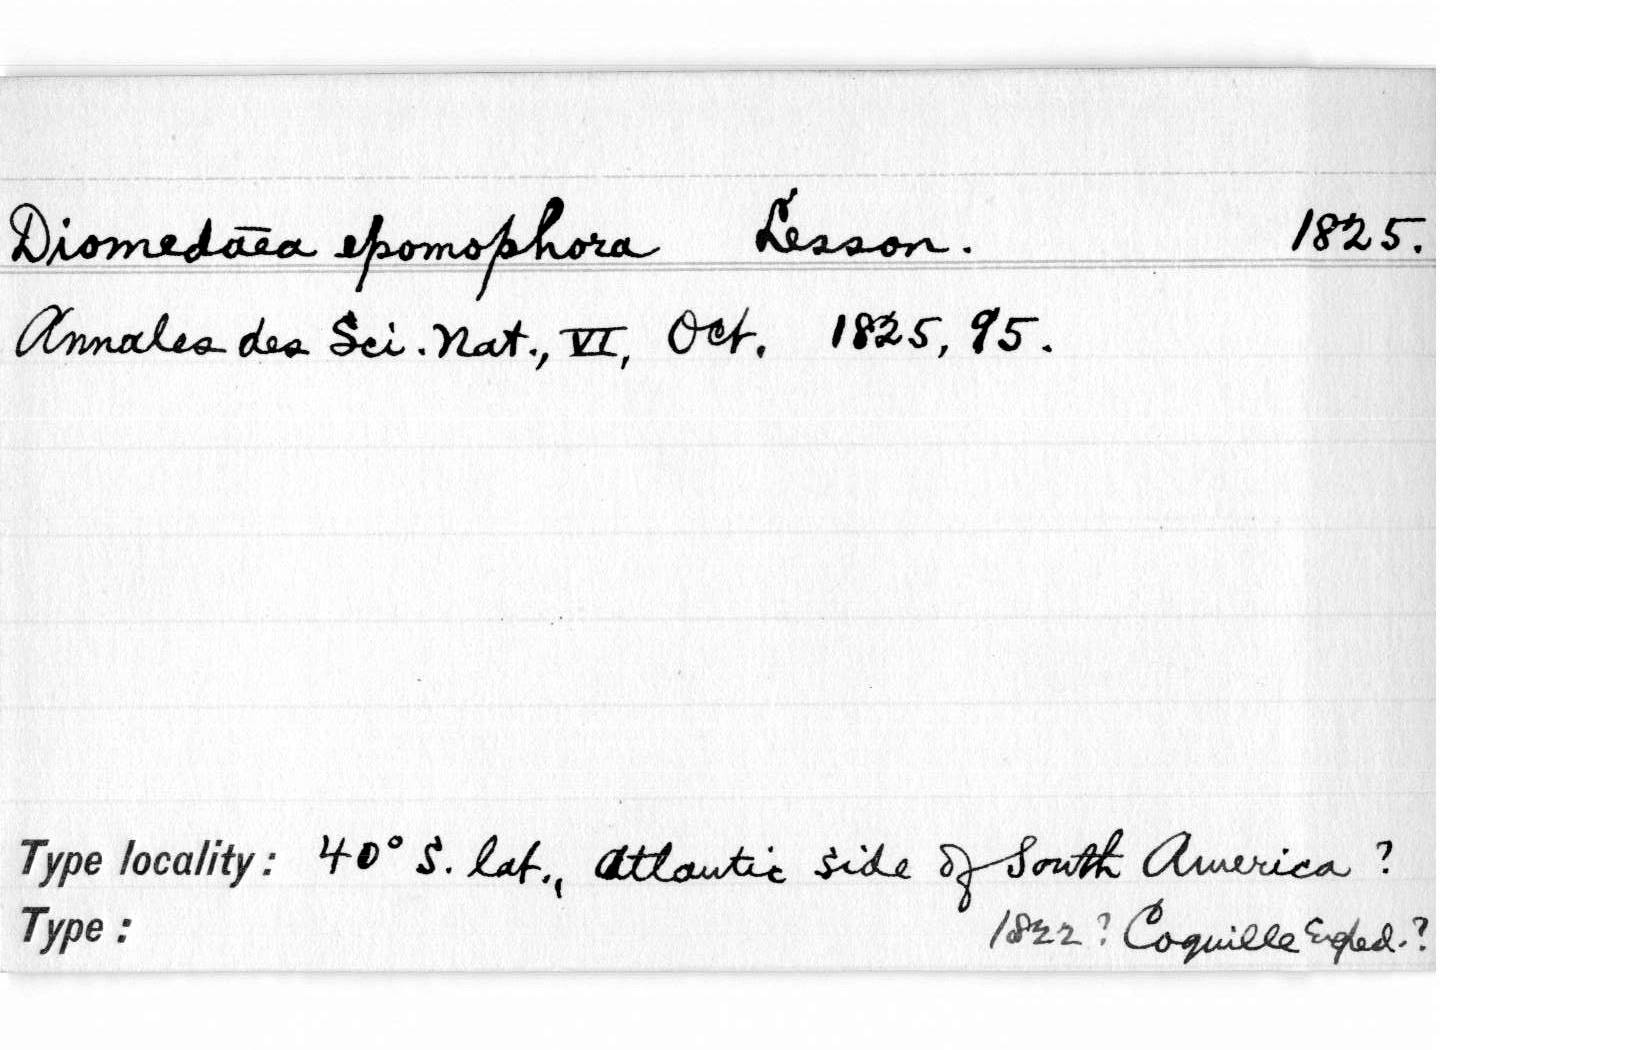 Diomedāēa epomophora Lesson. 1825.
Annales des Sci. Nat., VI, Oct. 1825, 95.
Type locality: 40° S. lat., Atlantic side of South America ?
Type: 1822? Coquille Exped.?